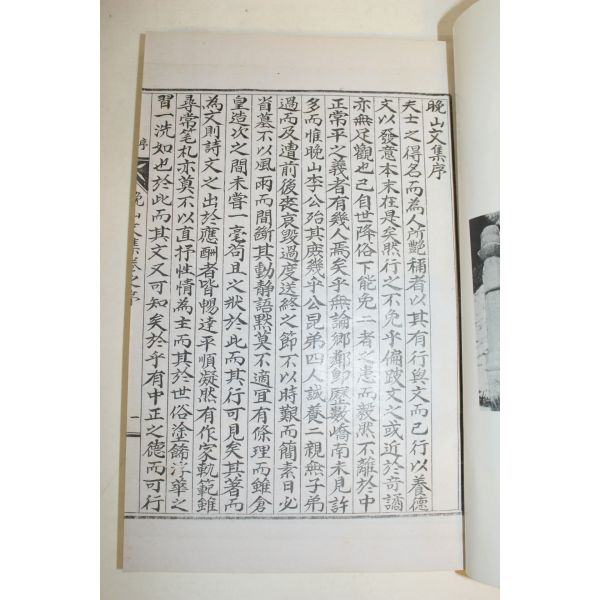 晩山文集序
夫士之得名而為人所艶稱者以其有行與文而已行以養德
文以發意本末在是矣然行之不免乎偏跛文之或近於奇譎
亦無足觀也已自世降俗下能免二者之患而毅然不離於中
正常平之義者有幾人焉矣乎無論鄉鄰卽歷數嶠南未見許
多而惟晩山李公殆其庶幾乎公昆弟四人誠養二親無子弟
過而及遭前後喪哀毀過度送終之節不以時艱而簡素日必
省墓不以風雨而間斷其動靜語默莫不適宜有條理而雖倉
皇造次之間未嘗一毫苟且之狀於此而其行可見矣其著而
為文則詩文之出於應酬者皆暢達平順凝然有作家軌範雖
尋常笔札亦莫不以直抒性情為主而其於世俗塗飾浮華之
習一洗如也於此而其文又可知矣於乎有中正之德而可行
晩山文集卷之序
一